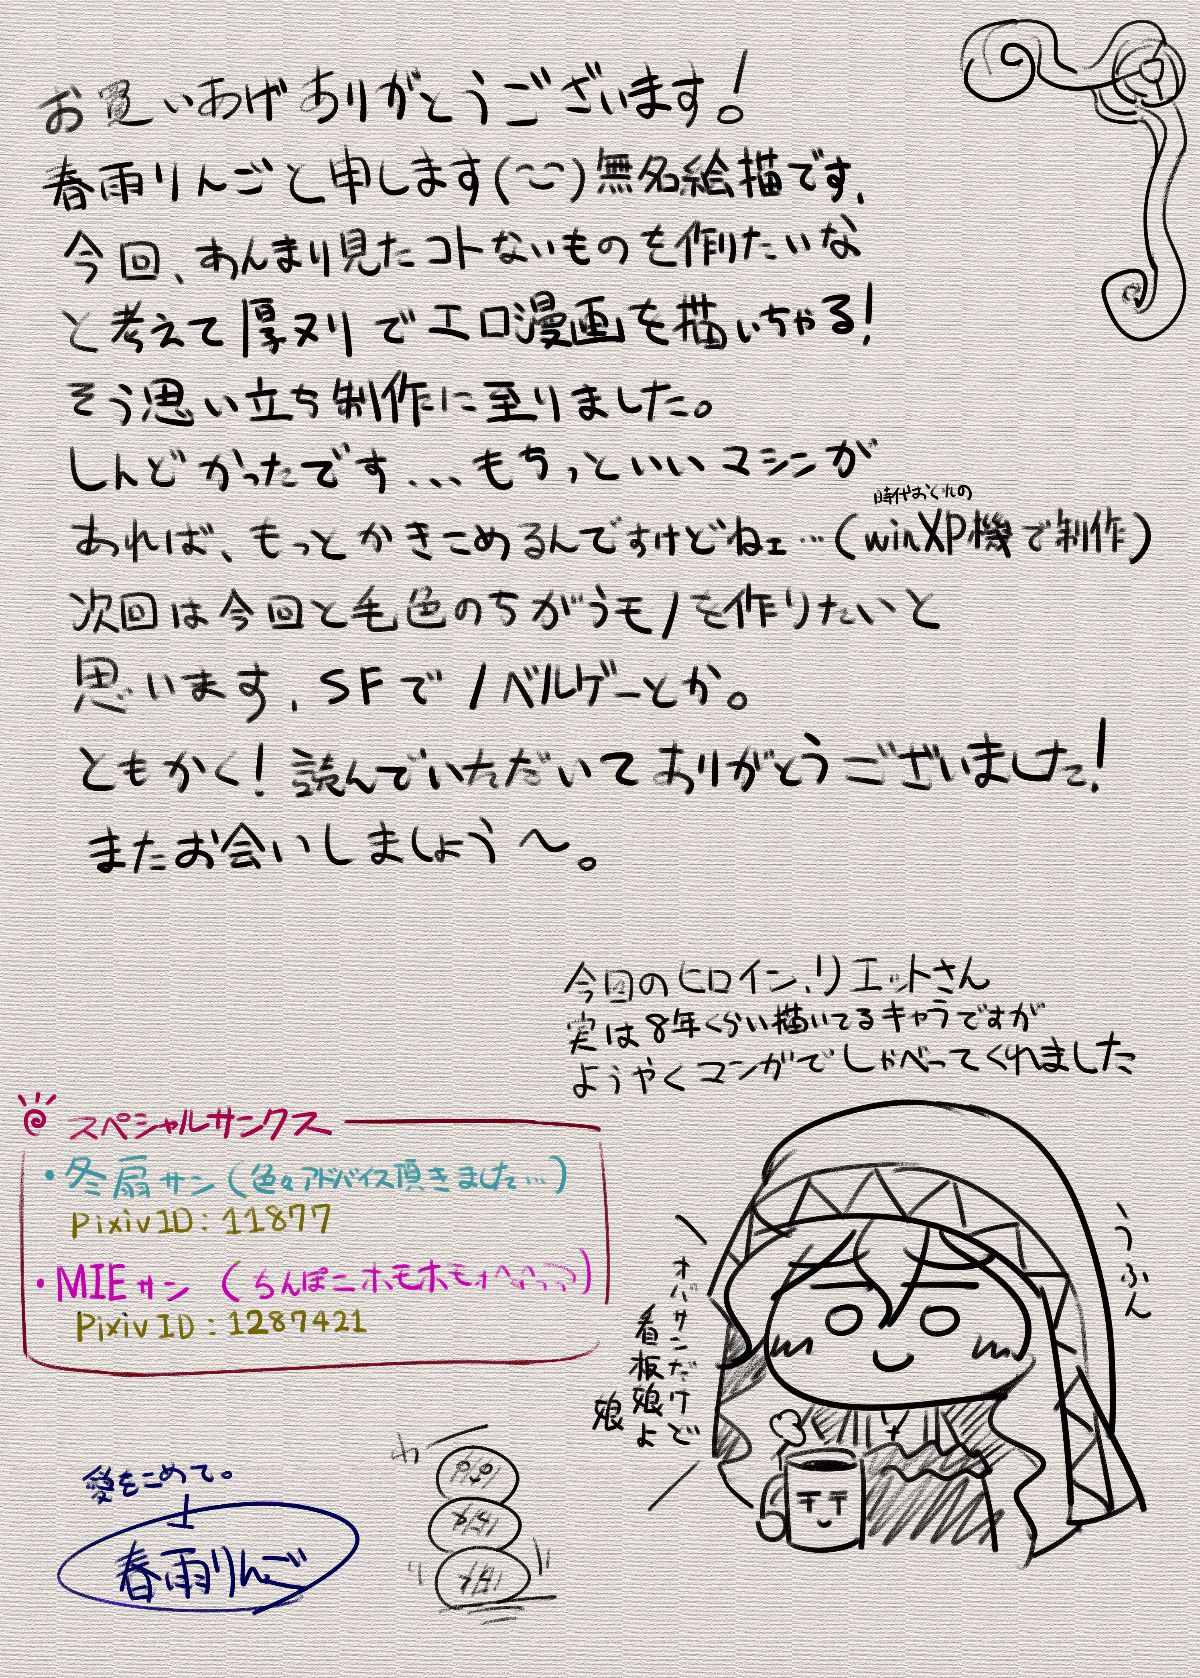 お買いあげありがとうございます!
春雨りんごと申します(ーー)無名絵描です、
今回、あんまり見たコトないものを作りたいな
と考えて厚ヌリでエロ漫画を描いちゃる!
そう思い立ち制作に至りました。
しんどかったです...もちっといいマシンが
時代おくれの
あれば、もっとかきこめるんですけどねェ…(winXP機で制作)
次回は今回と毛色のちがうモノを作りたいと
思います、SFでノベルゲーとか。
ともかく!読んでいただいてありがとうございました!
またお会いしましょう〜。
今回のヒロイン、リエットさん
実は8年くらい描いてるキャラですが
ようやくマンガでしゃべってくれました
スペシャルサンクス
・冬扇サン(色々アドバイス頂きました…)
PixivID:11877
・MIEサン(ちんぽニホモホモ
PixivID:1287421
うふん
オバサンだけど
看板娘よ
娘
愛をこめて。
春雨りんご